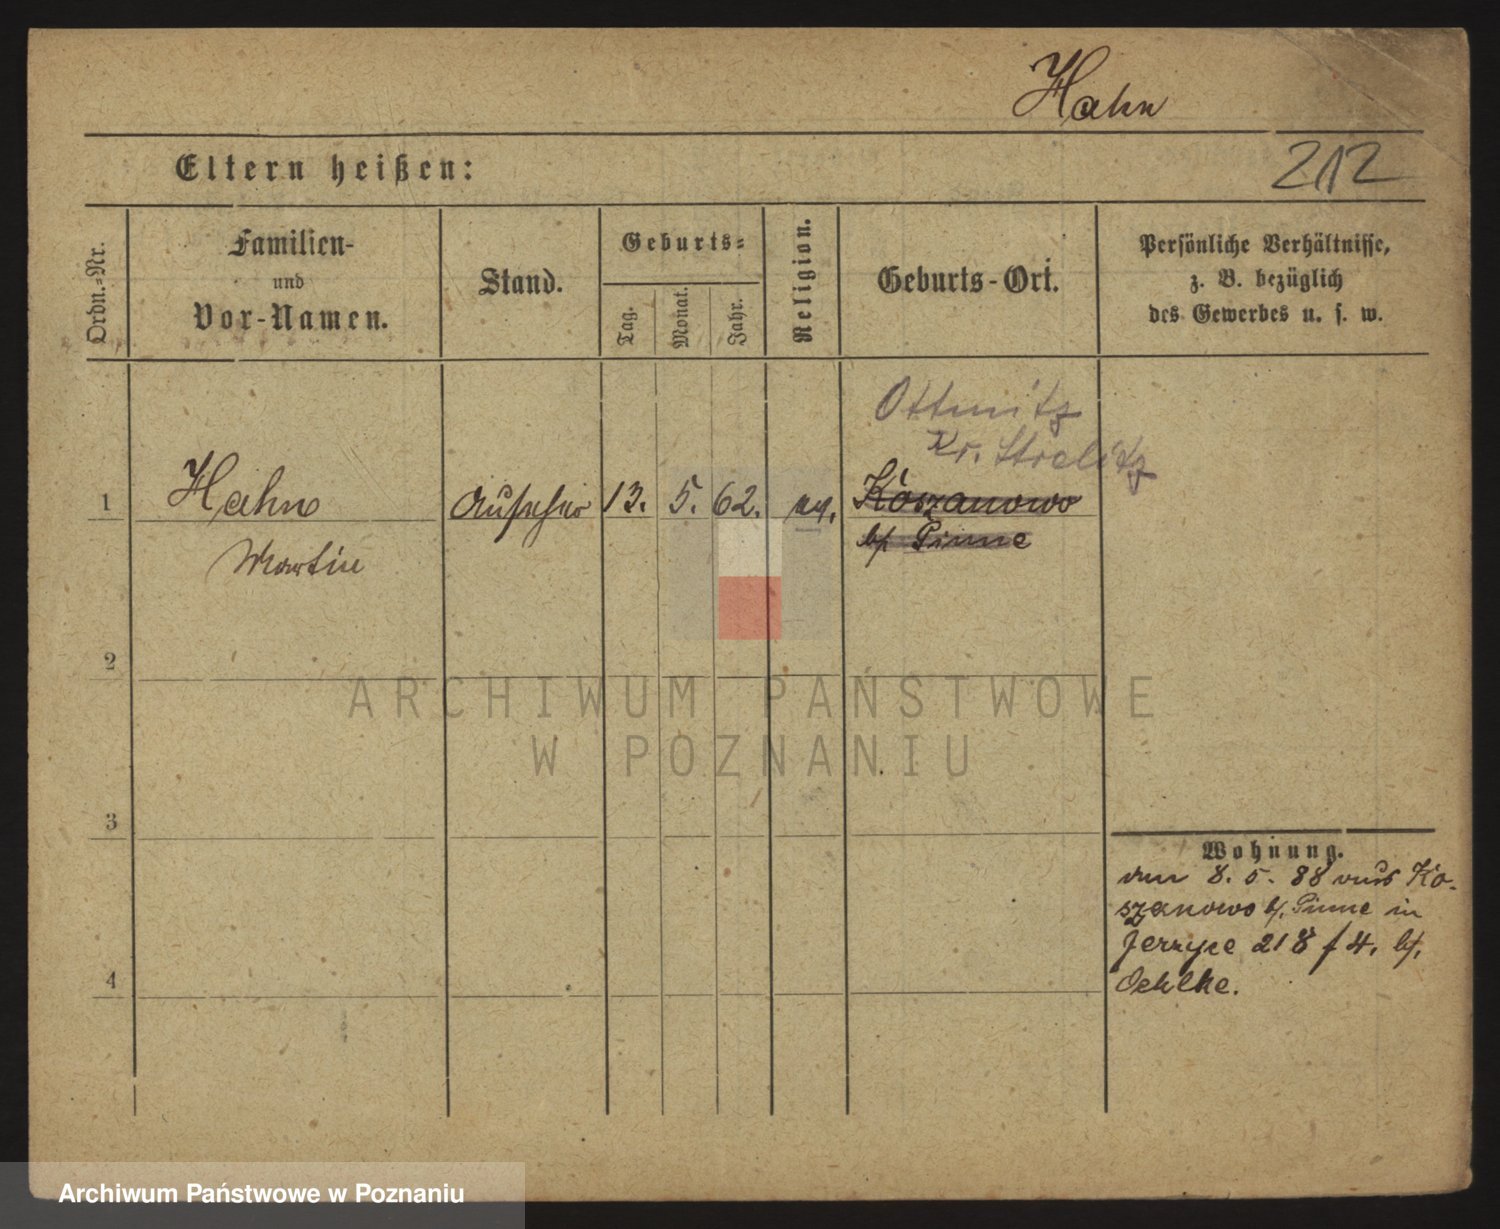 Hahn
212
Eltern heißen:
Ordn.-Nr.
Familien-
und
Vor-Namen.
Stand.
Geburts-
Tag.
Monat.
Jahr.
Religion.
Geburts-Ort.
Persönliche Verhältnisse,
z. B. bezüglich
des Gewerbes u. s. w.
Ottmitz
Kr. Strelitz
1 Hahn Aufseher 13. 5. 62. ev. Koszanowo
b/ Pinne
Martin
2
ARCHIWUM PAŃSTWOWE
W POZNANIU
3
Wohnung.
den 8. 5. 88 aus Ko-
szanowo b/. Pinne in
Jerzyce 218 f 4. b/.
4
Oehlke.
Archiwum Państwowe w Poznaniu